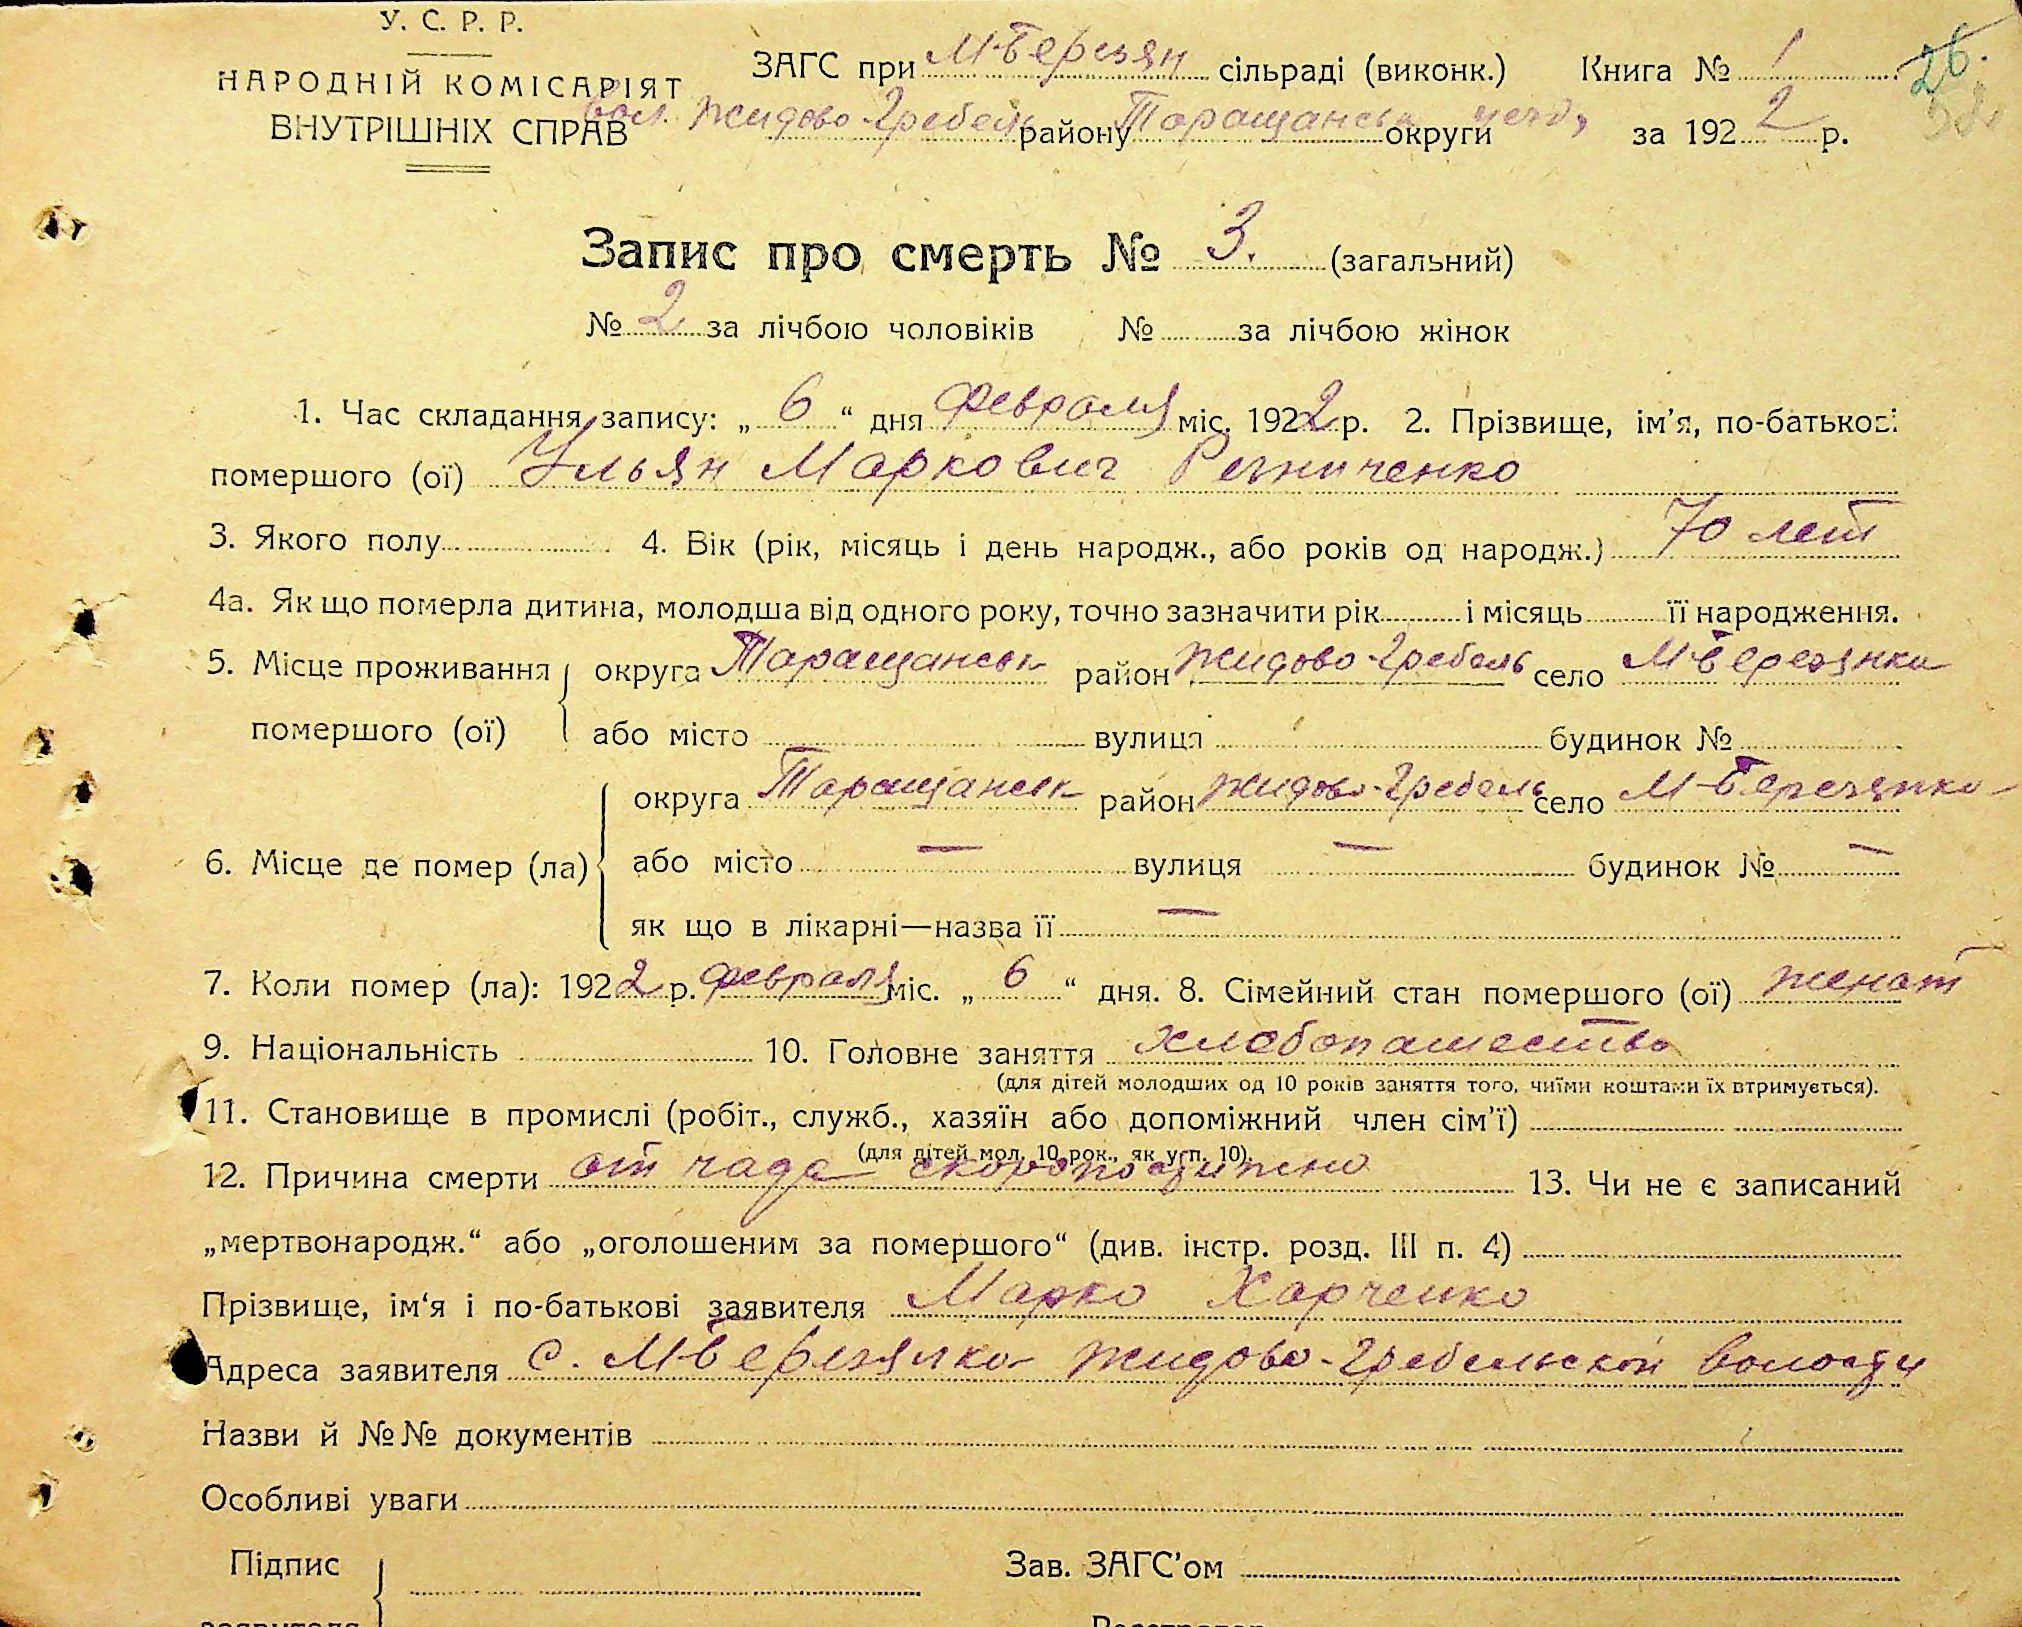 У. С. Р. Р.
НАРОДНІЙ КОМІСАРІЯТ
ВНУТРІШНІХ СПРАВ
ЗАГС при М-Березян сільраді (виконк.) Книга № 1 26.
вол. Жидово-Гребель району Таращанськ округи за 1922 р.
Запис про смерть № 3. (загальний)
№ 2 за лічбою чоловіків № за лічбою жінок
1. Час складання запису: „6“ дня Февраля міс. 1922 р. 2. Прізвище, ім'я, по-батькові
помершого (ої) Ульян Маркович Резниченко
3. Якого полу 4. Вік (рік, місяць і день народж., або років од народж.) 70 лет
4а. Як що померла дитина, молодша від одного року, точно зазначити рік і місяць її народження.
5. Місце проживання помершого (ої) округа Таращанськ район Жидово-Гребель село М-Березянка
або місто вулиця будинок №
6. Місце де помер (ла) округа Таращанськ район Жидово-Гребель село М-Березянка
або місто — вулиця — будинок № —
як що в лікарні—назва її —
7. Коли помер (ла): 1922 р. февраля міс. „6“ дня. 8. Сімейний стан помершого (ої) женат
9. Національність 10. Головне заняття хлебопашество
(для дітей молодших од 10 років заняття того, чиїми коштами їх втримується).
11. Становище в промислі (робіт., служб., хазяїн або допоміжний член сім'ї)
(для дітей мол. 10 рок., як у п. 10).
12. Причина смерти от чада скоропостижно 13. Чи не є записаний
„мертвонародж.“ або „оголошеним за помершого“ (див. інстр. розд. III п. 4)
Прізвище, ім‘я і по-батькові заявителя Марко Харченко
Адреса заявителя с. М-Березянка Жидово-Гребельской волости
Назви й №№ документів
Особливі уваги
Підпис Зав. ЗАГС'ом
заявителя Реєстратор